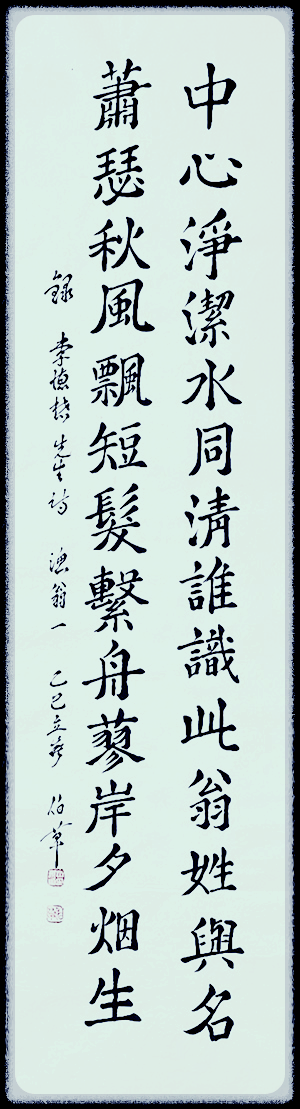 中心淨潔水同清誰識此翁姓與名
蕭瑟秋風飄短髮繫舟蓼岸夕烟生
錄 李德懋先生詩 漁翁一 乙巳立春